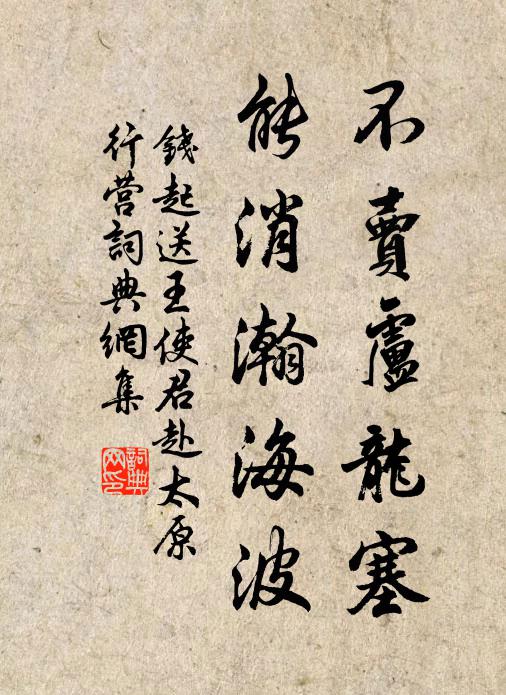 不賣盧龍塞
能消瀚海波
錢起送王使君赴太原
行营詞典網集
詞典
网印